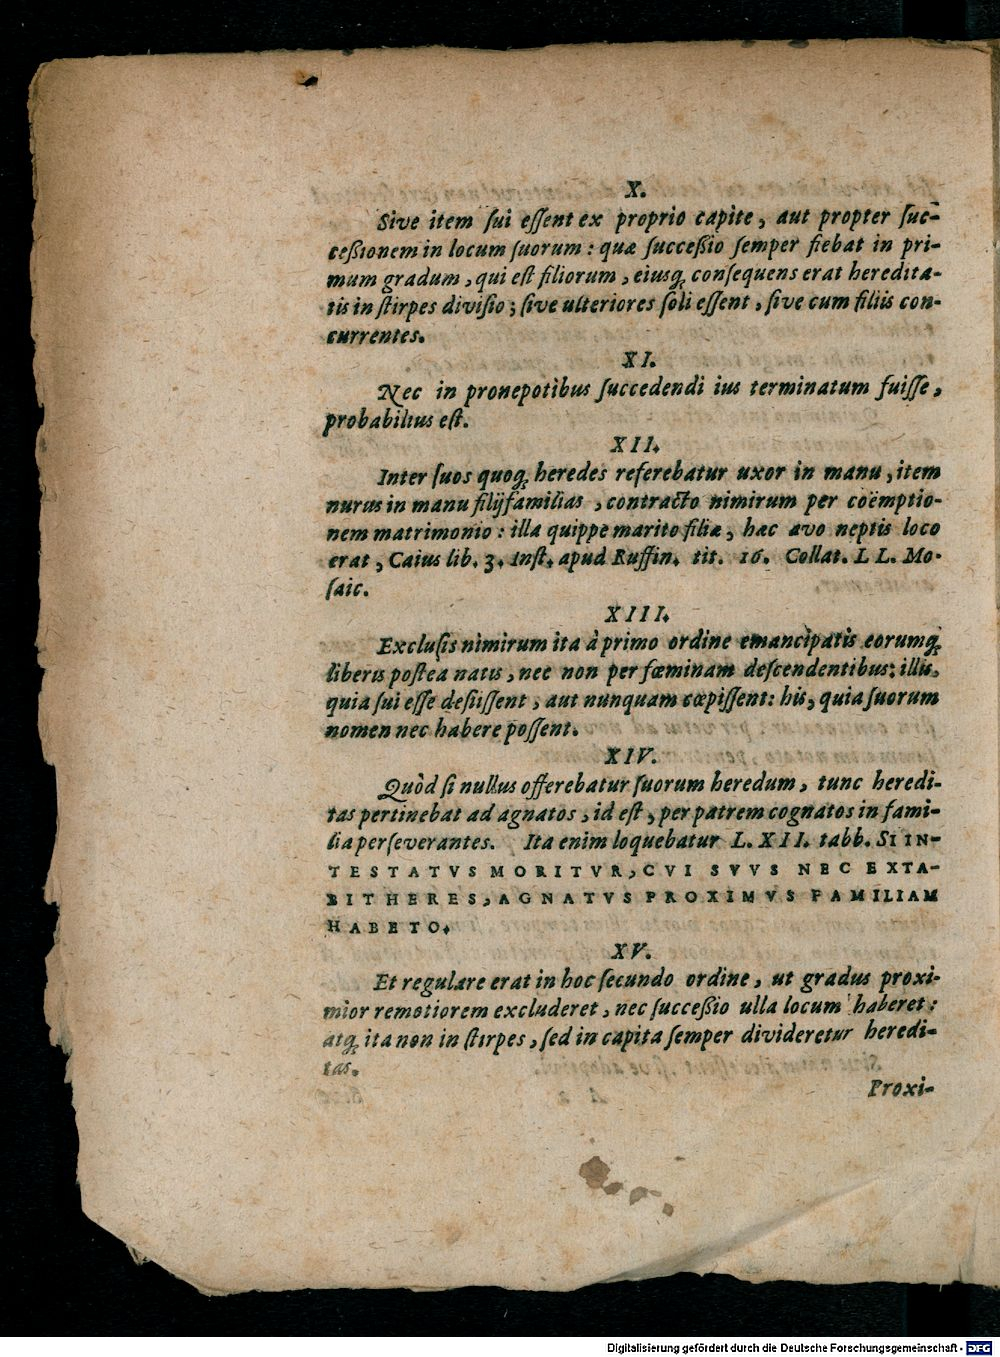 X.
Sive item ſui eſſent ex proprio capite, aut propter ſuc-
ceßionem in locum ſuorum: quæ ſucceßio ſemper fiebat in pri-
mum gradum, qui eſt filiorum, eiusq́; conſequens erat heredita-
tis in ſtirpes diviſio; ſive ulteriores ſoli eſſent, ſive cum filiis con-
currentes.
XI.
Nec in pronepotibus ſuccedendi ius terminatum fuiſſe,
probabilius eſt.
XII.
Inter ſuos quoq; heredes referebatur uxor in manu, item
nurus in manu filijfamilias, contracto nimirum per coëmptio-
nem matrimonio: illa quippe marito filiæ, hæc avo neptis loco
erat, Caius lib. 3. Inſt. apud Ruffin. tit. 16. Collat. L L. Mo-
ſaic.
XIII.
Excluſis nimirum ita à primo ordine emancipatis eorumq́;
liberis poſtea natis, nec non per fœminam deſcendentibus: illis,
quia ſui eſſe deſiiſſent, aut nunquam cœpiſſent: his, quia ſuorum
nomen nec habere poſſent.
XIV.
Quòd ſi nullus offerebatur ſuorum heredum, tunc heredi-
tas pertinebat ad agnatos, id eſt, per patrem cognatos in fami-
lia perſeverantes. Ita enim loquebatur L. XII. tabb. SI IN-
TESTATVS MORITVR, CVI SVVS NEC EXTA-
BIT HERES, AGNATVS PROXIMVS FAMILIAM
HABETO.
XV.
Et regulare erat in hoc ſecundo ordine, ut gradus proxi-
mior remotiorem excluderet, nec ſucceßio ulla locum haberet:
atq́; ita non in ſtirpes, ſed in capita ſemper divideretur heredi-
tas.
Proxi-
Digitalisierung gefördert durch die Deutsche Forschungsgemeinschaft - DFG